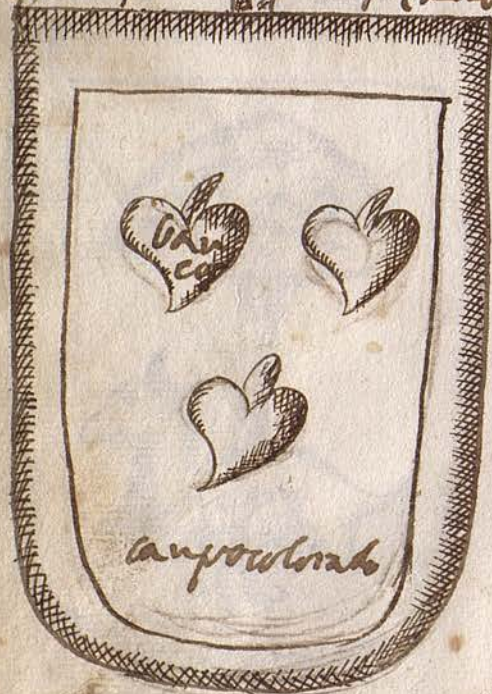 blan
co
campo colorado